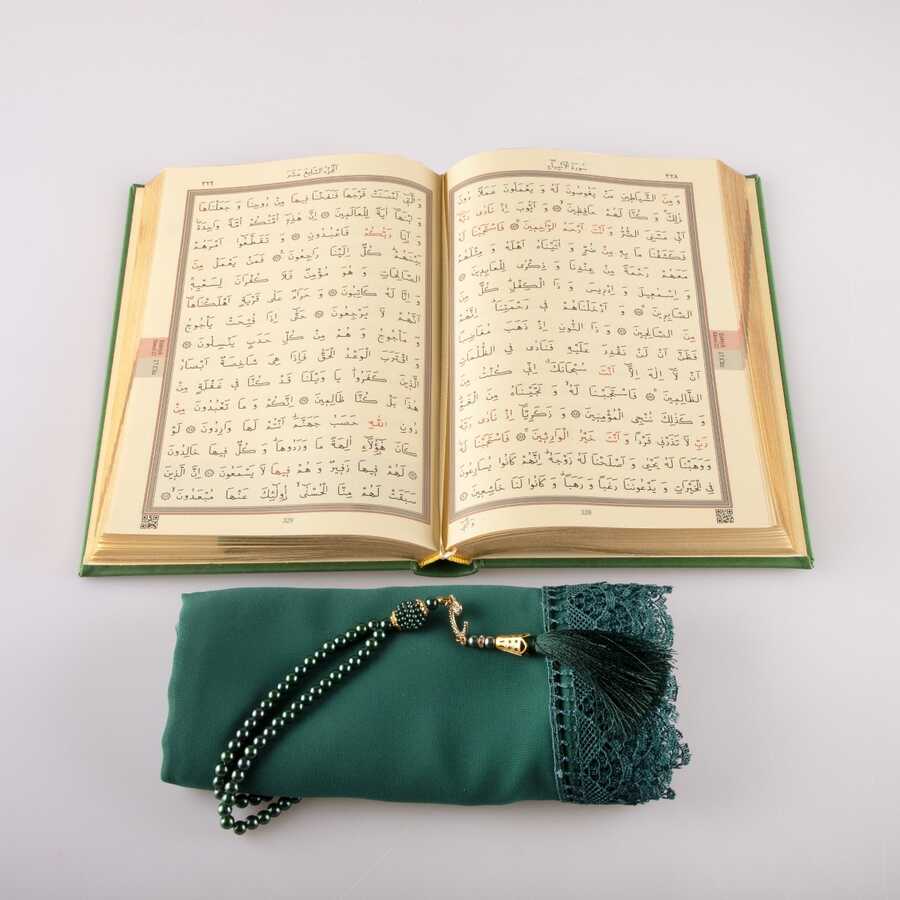 سُورَةُ الْاَنْبِيَاءِ ٣٢٨
وَ مِنَ الشَّيَاطِينِ مَنْ يَغُوصُونَ لَهُ وَ يَعْمَلُونَ عَمَلًا دُونَ
ذٰلِكَ وَ كُنَّا لَهُمْ حَافِظِينَ ۞ وَ اَيُّوبَ اِذْ نَادٰى رَبَّهُ
اَنِّي مَسَّنِيَ الضُّرُّ وَ اَنْتَ اَرْحَمُ الرَّاحِمِينَ ۞ فَاسْتَجَبْنَا لَهُ
فَكَشَفْنَا مَا بِهِ مِنْ ضُرٍّ وَ اٰتَيْنَاهُ اَهْلَهُ وَ مِثْلَهُمْ
مَعَهُمْ رَحْمَةً مِنْ عِنْدِنَا وَ ذِكْرٰى لِلْعَابِدِينَ ۞
وَ اِسْمٰعِيلَ وَ اِدْرِيسَ وَ ذَا الْكِفْلِ كُلٌّ مِنَ
الصَّابِرِينَ ۞ وَ اَدْخَلْنَاهُمْ فِي رَحْمَتِنَا اِنَّهُمْ
مِنَ الصَّالِحِينَ ۞ وَ ذَا النُّونِ اِذْ ذَهَبَ مُغَاضِبًا
فَظَنَّ اَنْ لَنْ نَقْدِرَ عَلَيْهِ فَنَادٰى فِي الظُّلُمَاتِ
اَنْ لَا اِلٰهَ اِلَّا اَنْتَ سُبْحَانَكَ اِنِّي كُنْتُ مِنَ
الظَّالِمِينَ ۞ فَاسْتَجَبْنَا لَهُ وَ نَجَّيْنَاهُ مِنَ الْغَمِّ
وَ كَذٰلِكَ نُنْجِي الْمُؤْمِنِينَ ۞ وَ زَكَرِيَّا اِذْ نَادٰى رَبَّهُ
رَبِّ لَا تَذَرْنِي فَرْدًا وَ اَنْتَ خَيْرُ الْوَارِثِينَ ۞ فَاسْتَجَبْنَا لَهُ
وَ وَهَبْنَا لَهُ يَحْيٰى وَ اَصْلَحْنَا لَهُ زَوْجَهُ اِنَّهُمْ كَانُوا يُسَارِعُونَ
فِي الْخَيْرَاتِ وَ يَدْعُونَنَا رَغَبًا وَ رَهَبًا وَ كَانُوا لَنَا خَاشِعِينَ ۞
وَ الَّتِي
328
اَلْجُزْءُ السَّابِعُ عَشَرَ
وَ الَّتِي اَحْصَنَتْ فَرْجَهَا فَنَفَخْنَا فِيهَا مِنْ رُوحِنَا وَ جَعَلْنَاهَا
وَ ابْنَهَا اٰيَةً لِلْعَالَمِينَ ۞ اِنَّ هٰذِهِ اُمَّتُكُمْ اُمَّةً وَاحِدَةً
وَ اَنَا رَبُّكُمْ فَاعْبُدُونِ ۞ وَ تَقَطَّعُوا اَمْرَهُمْ
بَيْنَهُمْ كُلٌّ اِلَيْنَا رَاجِعُونَ ۞ فَمَنْ يَعْمَلْ مِنَ
الصَّالِحَاتِ وَ هُوَ مُؤْمِنٌ فَلَا كُفْرَانَ لِسَعْيِهِ
وَ اِنَّا لَهُ كَاتِبُونَ ۞ وَ حَرَامٌ عَلٰى قَرْيَةٍ اَهْلَكْنَاهَا
اَنَّهُمْ لَا يَرْجِعُونَ ۞ حَتّٰى اِذَا فُتِحَتْ يَأْجُوجُ
وَ مَأْجُوجُ وَ هُمْ مِنْ كُلِّ حَدَبٍ يَنْسِلُونَ ۞
وَ اقْتَرَبَ الْوَعْدُ الْحَقُّ فَاِذَا هِيَ شَاخِصَةٌ اَبْصَارُ
الَّذِينَ كَفَرُوا يَا وَيْلَنَا قَدْ كُنَّا فِي غَفْلَةٍ مِنْ
هٰذَا بَلْ كُنَّا ظَالِمِينَ ۞ اِنَّكُمْ وَ مَا تَعْبُدُونَ مِنْ
دُونِ اللّٰهِ حَصَبُ جَهَنَّمَ اَنْتُمْ لَهَا وَارِدُونَ ۞ لَوْ
كَانَ هٰؤُلَاءِ اٰلِهَةً مَا وَرَدُوهَا وَ كُلٌّ فِيهَا خَالِدُونَ
۞ لَهُمْ فِيهَا زَفِيرٌ وَ هُمْ فِيهَا لَا يَسْمَعُونَ ۞ اِنَّ الَّذِينَ
سَبَقَتْ لَهُمْ مِنَّا الْحُسْنٰى اُولٰئِكَ عَنْهَا مُبْعَدُونَ ۞
329